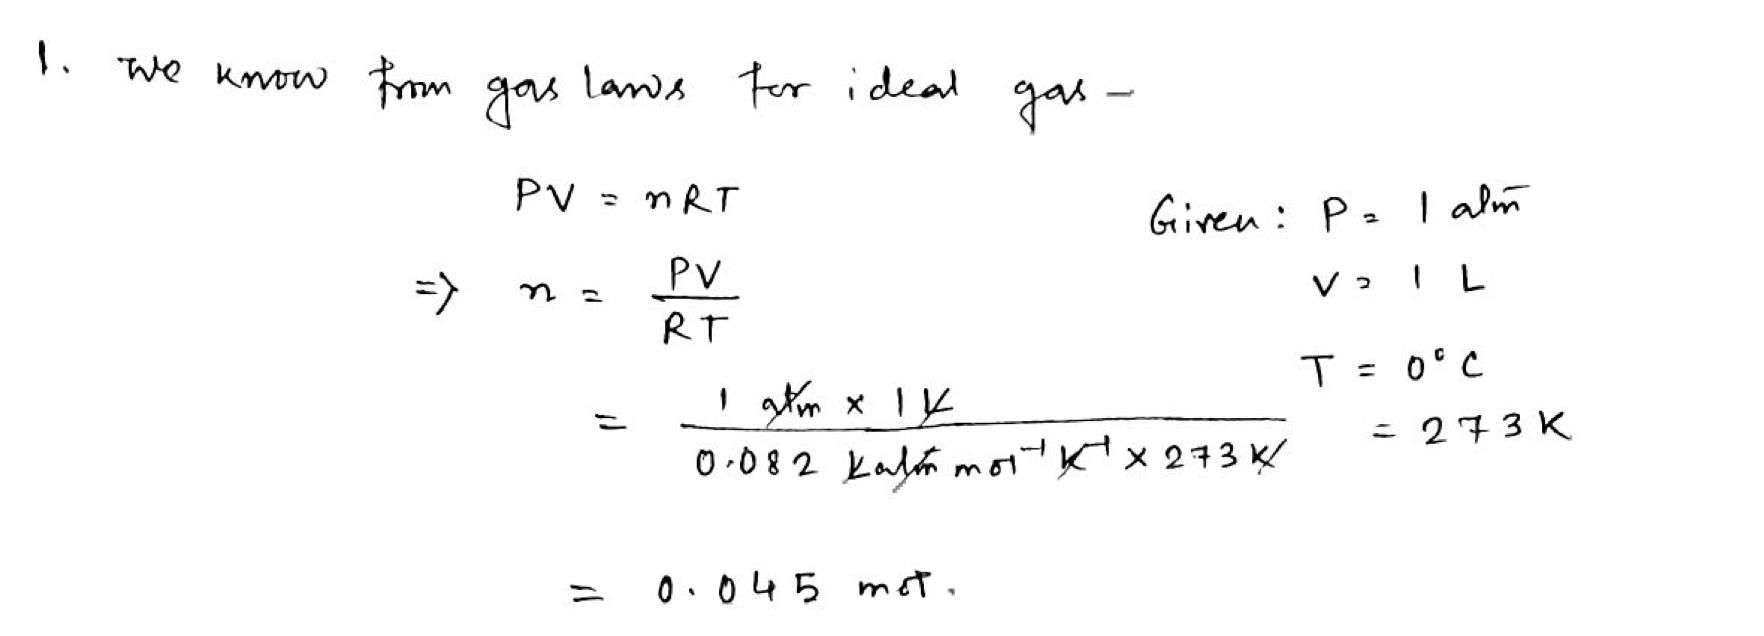 1. We know from gas laws for ideal gas -
PV = nRT
Given: P = 1 atm
=> n = PV / RT
V = 1 L
T = 0°C
= 1 atm × 1 L / 0.082 L atm mol⁻¹ K⁻¹ × 273 K
= 273 K
= 0.045 mol.